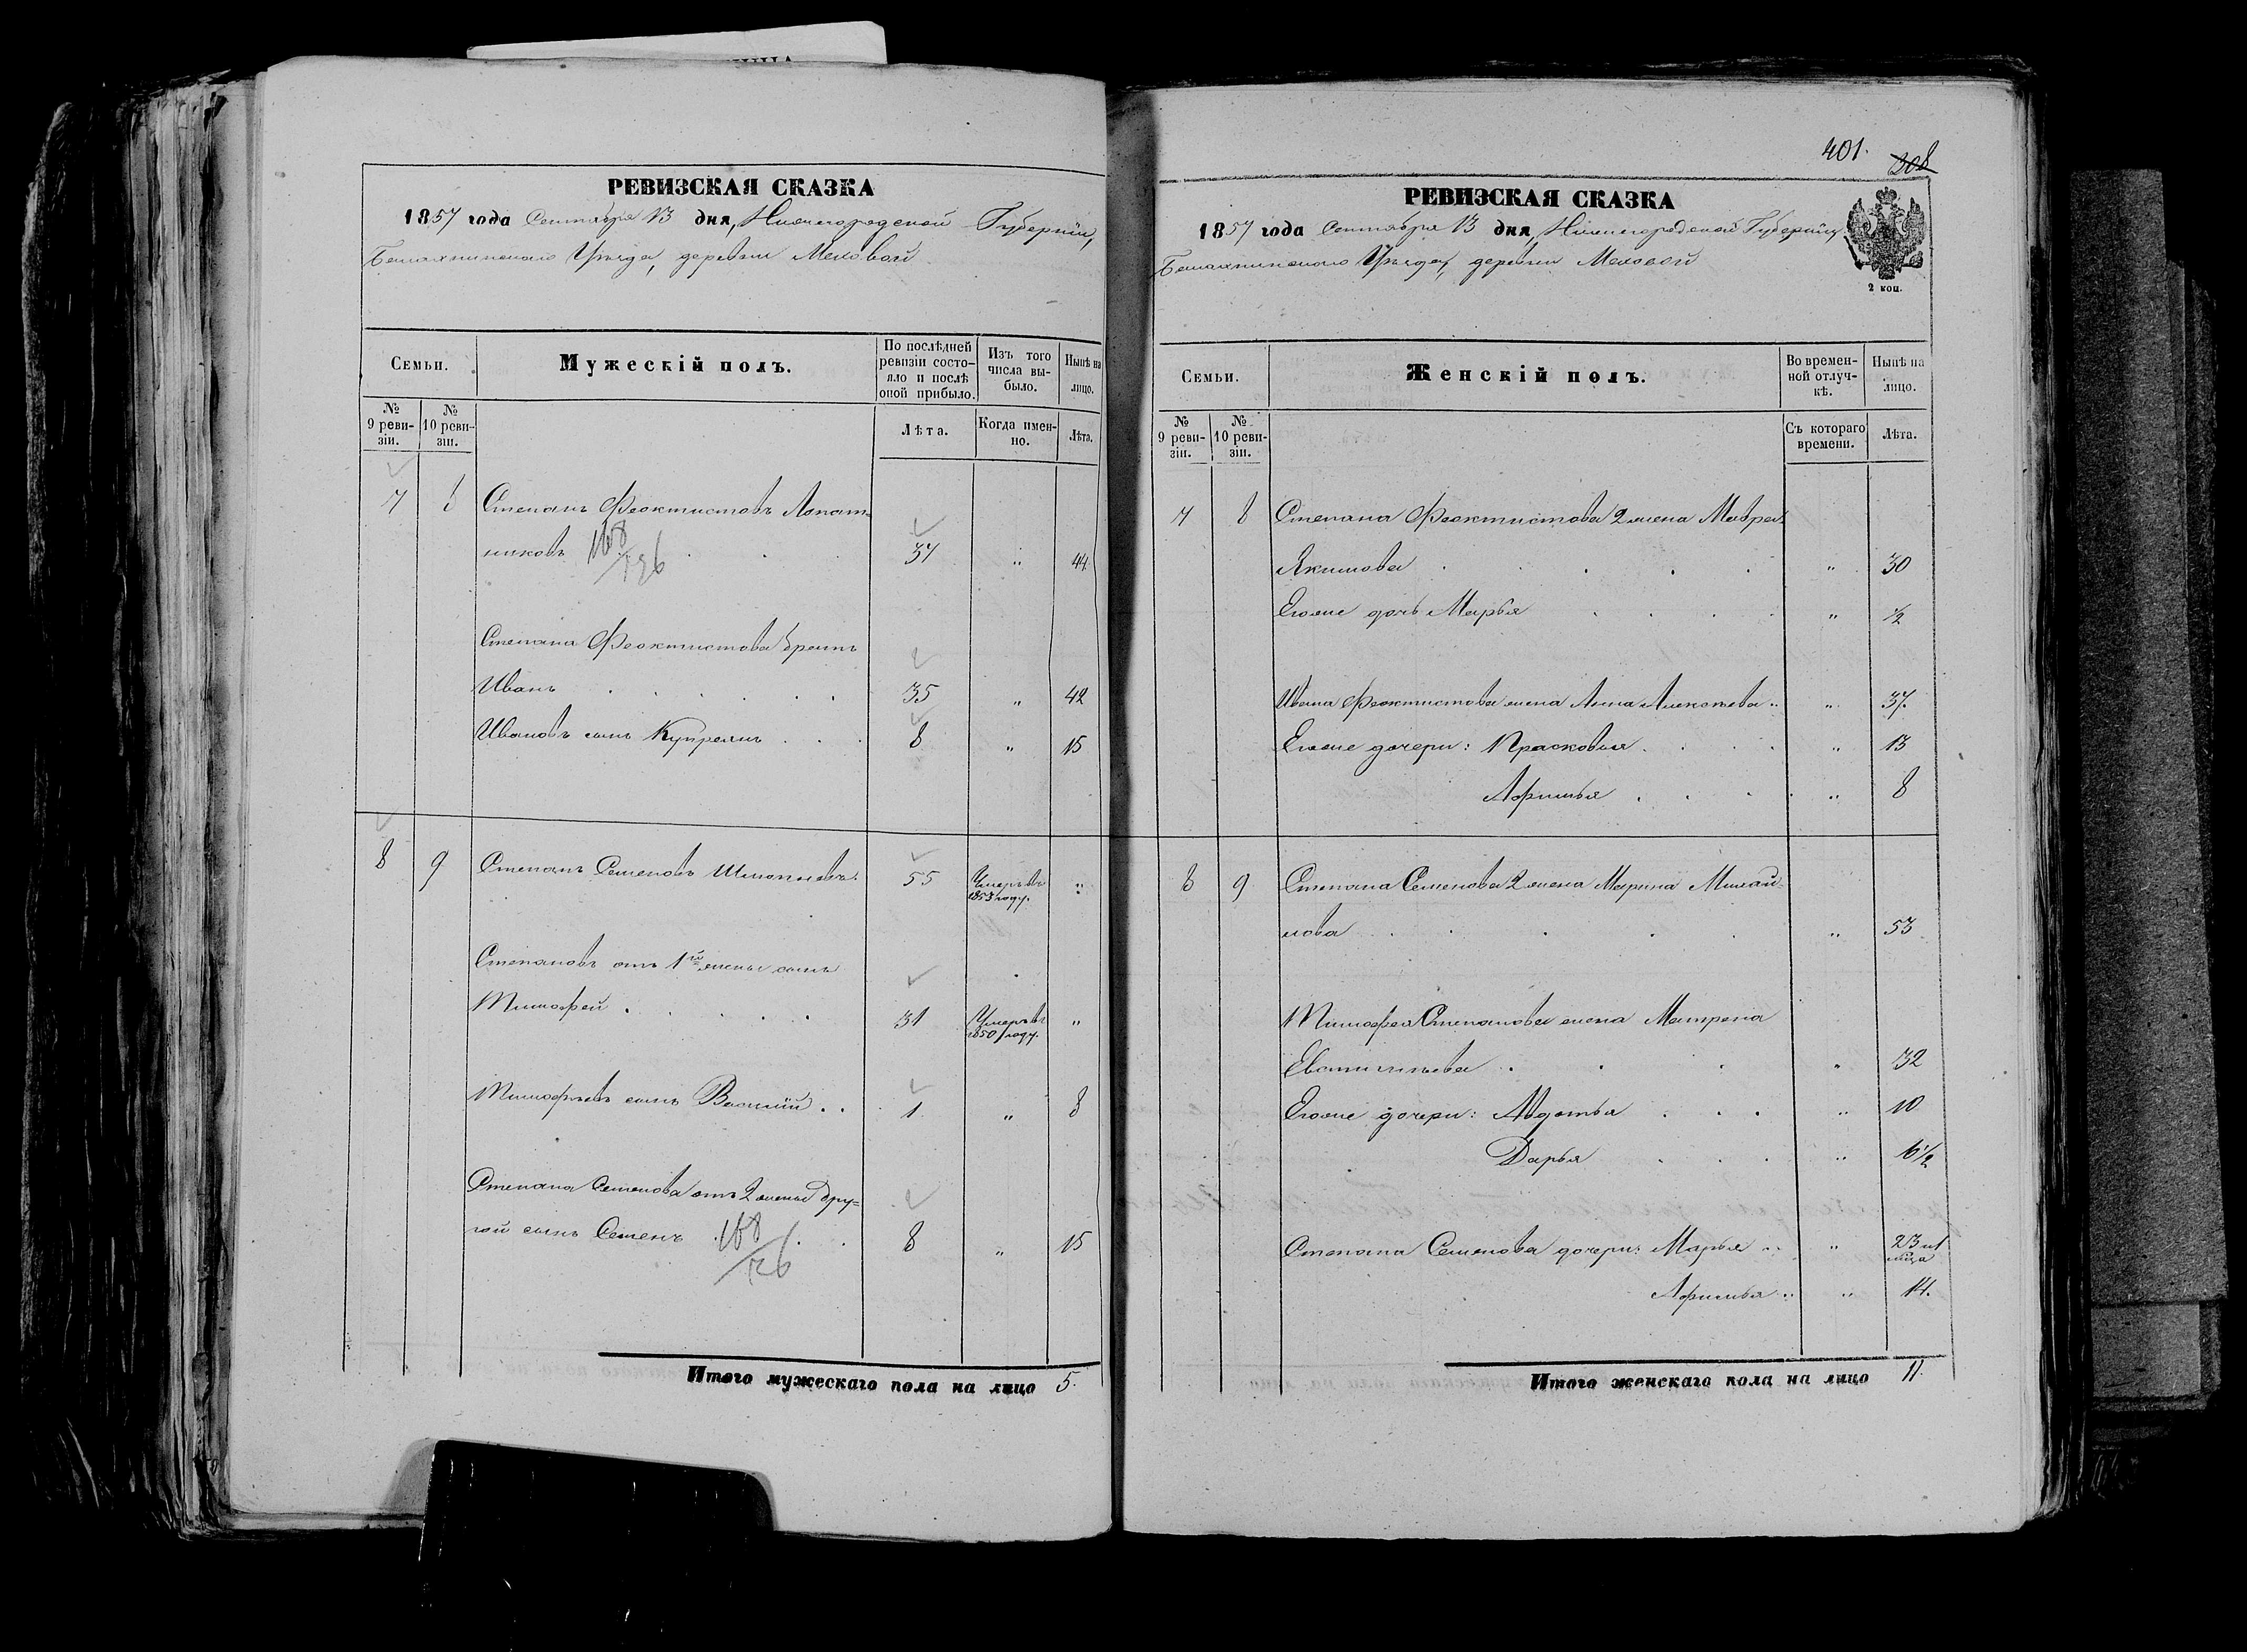 РЕВИЗСКАЯ СКАЗКА
1857 года Сентября 13 дня, Нижегородской Губерніи,
Балахнинскаго Уѣзда, деревни Меховой
Семьи.
Мужескій полъ.
По послѣдней ревизіи состояло и послѣ оной прибыло.
Изъ того числа выбыло.
Нынѣ на лицо.
№ 9 ревизіи.
№ 10 ревизіи.
Лѣта.
Когда именно.
Лѣта.
7 8 Степанъ Феоктистовъ Лопат-
никовъ 37 " 44
Степана Феоктистова братъ
Иванъ 35 " 42
Ивановъ сынъ Купреянъ 8 " 15
8 9 Степанъ Семеновъ 55 Умеръ въ 1853 году. "
Степановъ от 1й жены сынъ
Тимофей 31 Умеръ въ 1850 году. "
Тимофѣевъ сынъ Василій 1 " 8
Степана Семенова отъ 2 жены дру=
гой сынъ Семенъ 8 " 15
Итого мужескаго пола на лицо 5.
401.
РЕВИЗСКАЯ СКАЗКА
1857 года Сентября 13 дня, Нижегородской Губерніи,
Балахнинскаго Уѣзда, деревни Меховой
2 коп.
Семьи.
Женскій полъ.
Во временной отлучкѣ.
Нынѣ на лицо.
№ 9 ревизіи.
№ 10 ревизіи.
Съ котораго времени.
Лѣта.
7 8 Степана Феоктистова 2 жена Мавра
Якимова " 30
Егоже дочь Марья " 1/2
Ивана Феоктистова жена Анна Алексѣева " 37.
Егоже дочери: Прасковья " 13
Афимья " 8
8 9 Степана Семенова 2 жена Марина Михай-
лова " 53
Тимофея Степанова жена Матрена
" 32
Егоже дочери: Авдотья " 10
Дарья " 6 1/2
Степана Семенова дочери: Марья " 23
Афимья " 14.
Итого женскаго пола на лицо 11.